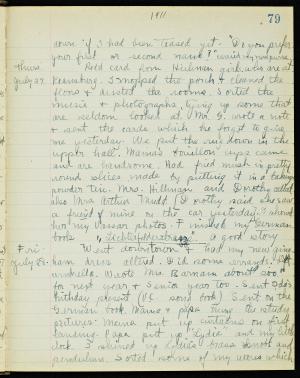 1911
79
down if I had been teased yet. "Do you prefer
your first or second name?"
Thurs. Had card from Hillman girls who are at
July 27. Kearsarge. I mopped the porch & cleaned the
floors & dusted the rooms. Sorted the
music & photographs, tying up some that
are seldom looked at. Mr. G. wrote a note
& sent the cards which he forgot to give
me yesterday. We put the rug down in the
upper hall. Mama's bouillon cups came
and are handsome. Had fried mush in pretty
round slices made by putting it in a baking
powder tin. Mrs. Hillman and Dorothy called
also Mrs. Arthur Mudd. Dorothy said she saw
a friend of mine on the car yesterday. I showed
two my Vassar photos. I finished my German
book. A good story.
Fri. West downtown & had my new ging-
July 28. ham dress altered. Did some errands.
umbrella. Wrote Mrs. Barnam about 500
for next year & Senior year too. Sent
birthday present (V.C. song book). Sent on the
German book. Mama & papa hung the study
pictures. Mama put up curtains on first
landing. Papa put up "Lydia" and my little
clock. I shined up
pendulum. Sorted some of my letters which